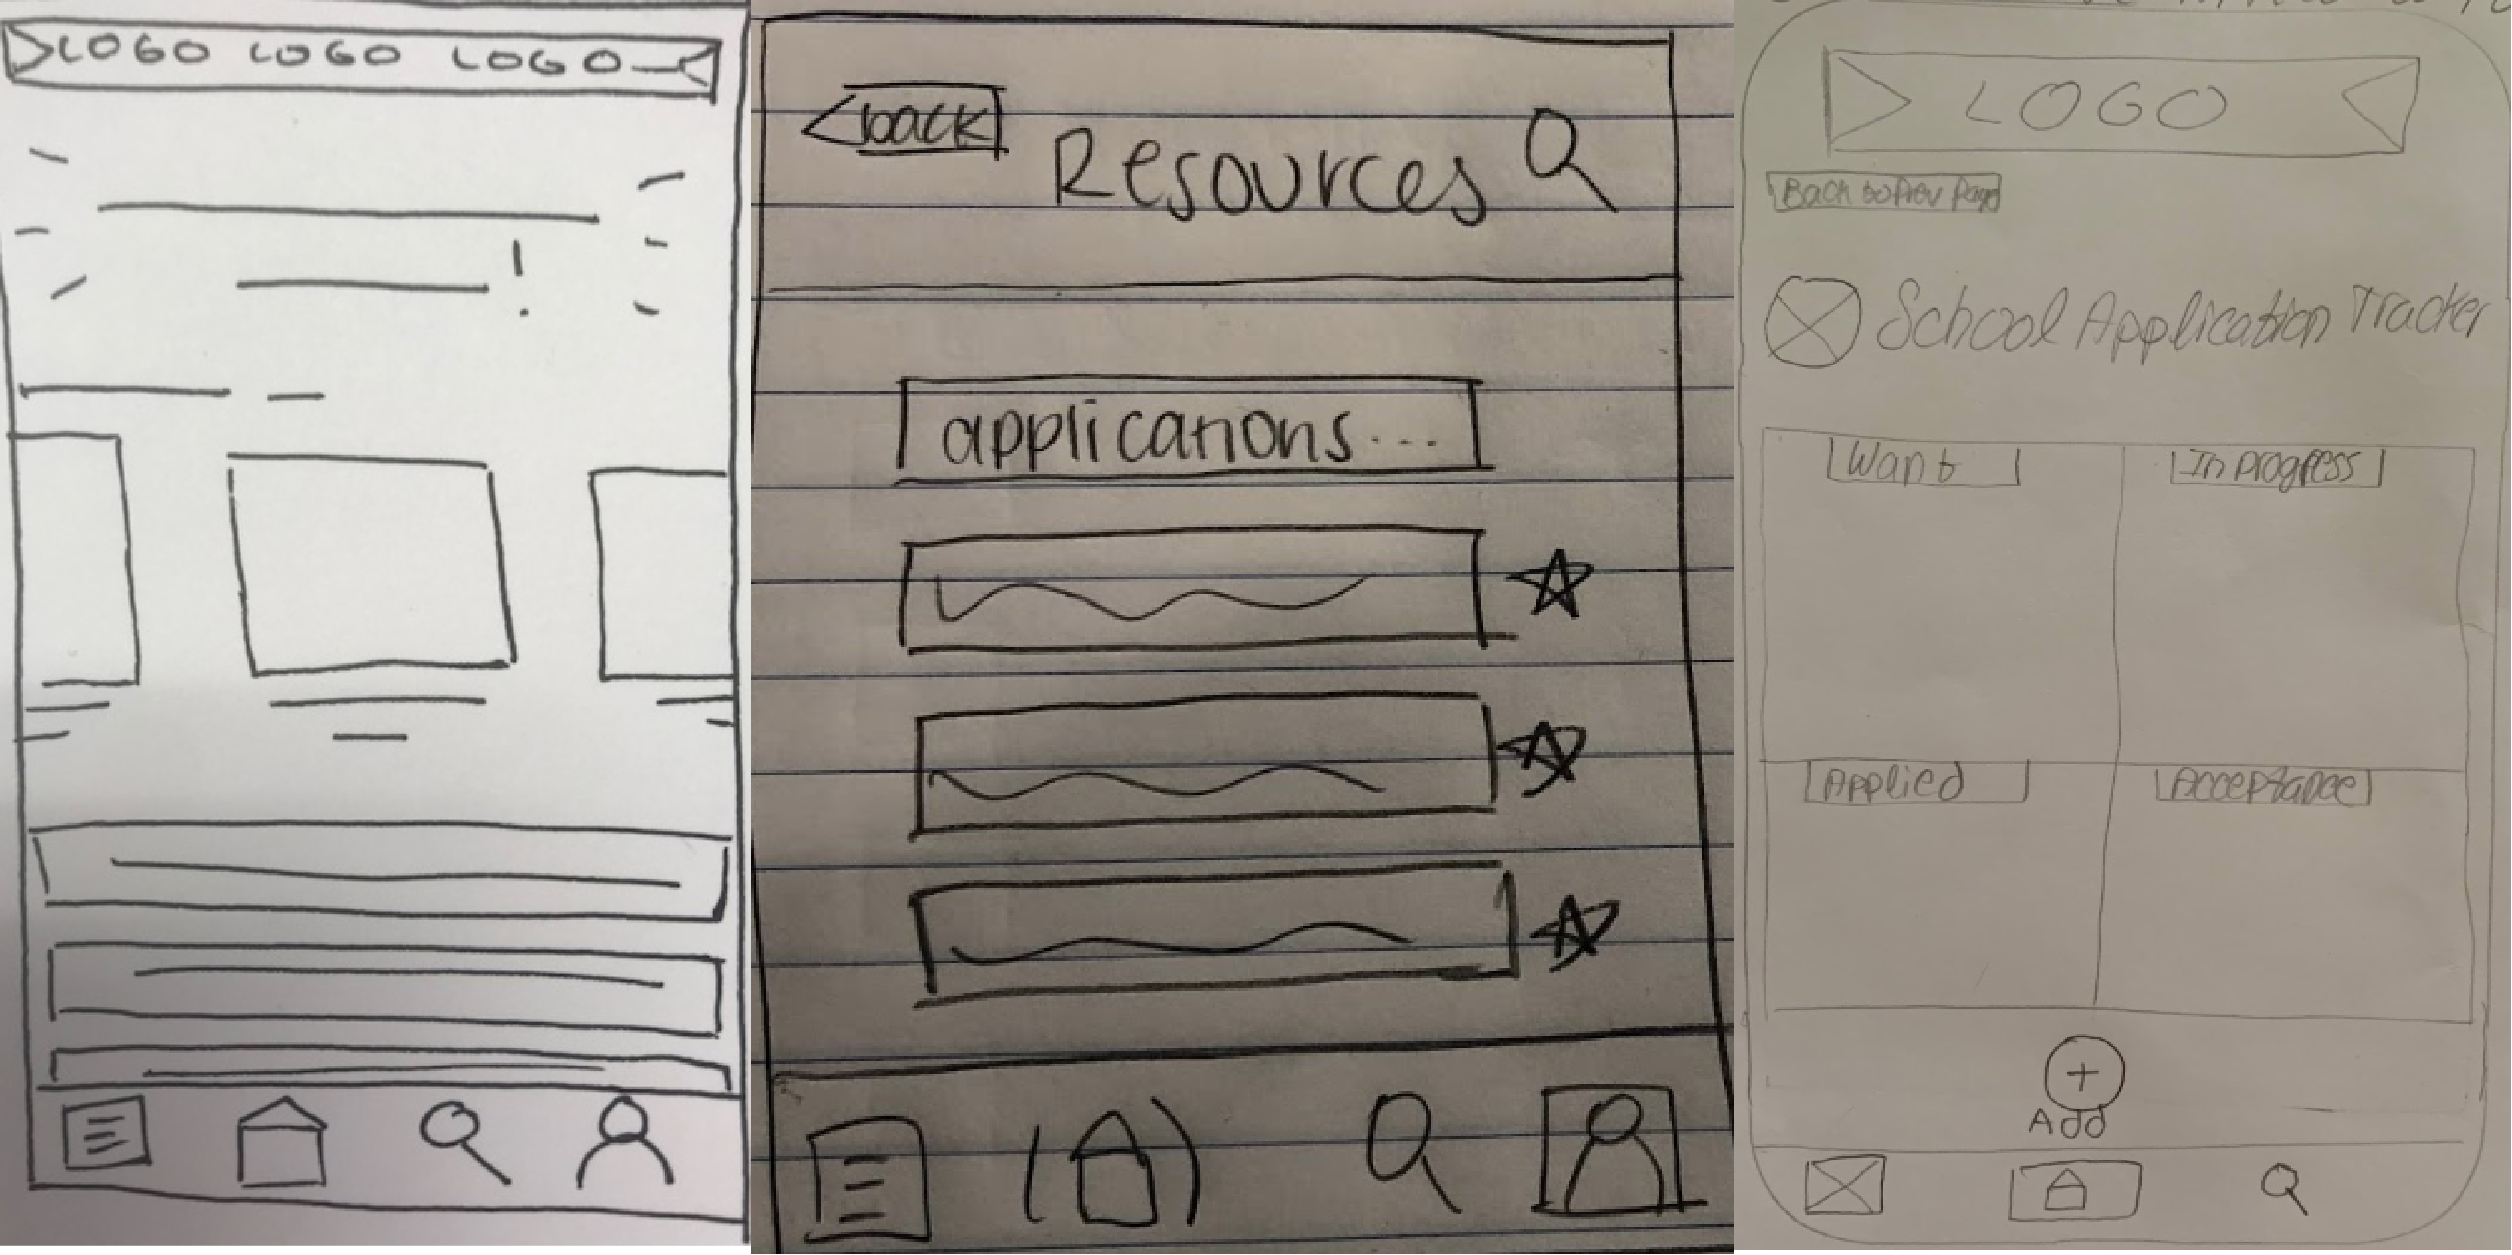 LOGO LOGO LOGO
back
Resources
applications...
LOGO
Back to Prev Page
School Application Tracker
Want
In progress
Applied
Acceptance
+
Add